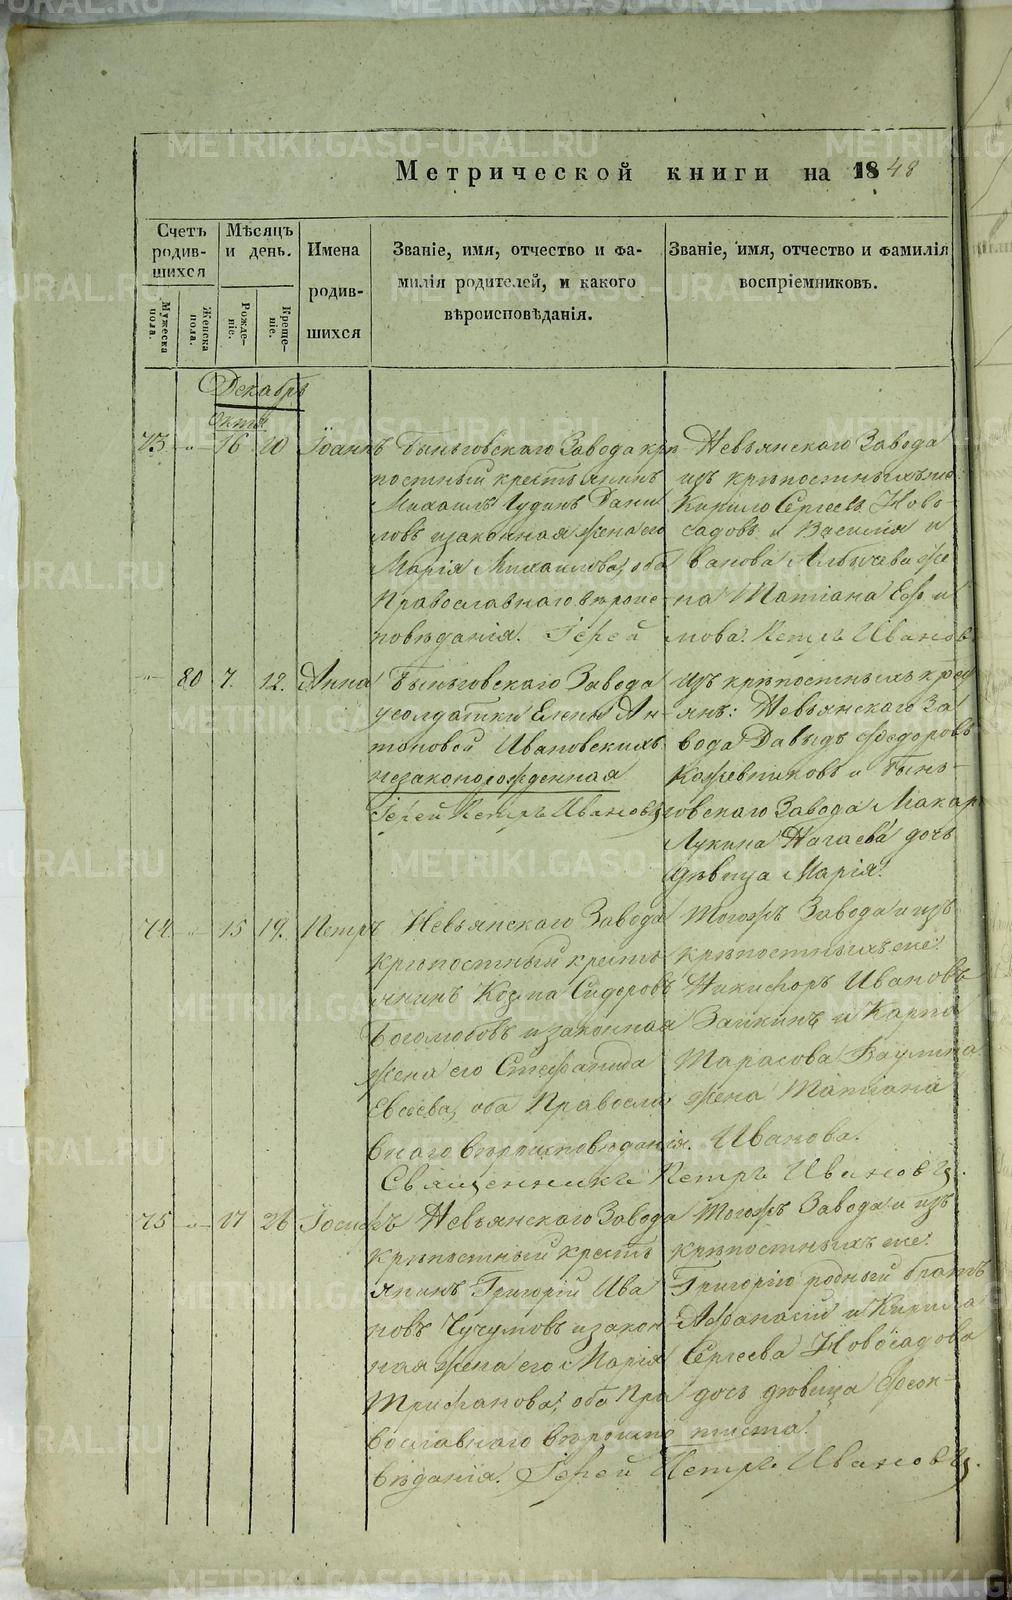 Метрической книги на 1848
Счетъ родившихся
Мѣсяцъ и день.
Имена родившихся
Званіе, имя, отчество и фамилія родителей, и какого вѣроисповѣданія.
Званіе, имя, отчество и фамилія воспріемниковъ.
Мужеска пола.
Женска пола.
Рожденіе.
Крещеніе.
Декабрь
73. " 16 20 Іоаннъ
Быньговскаго Завода крѣ
постный крестьянинъ
Михаилъ Чудинъ Дани
ловъ и законная жена его
Марія Михайлова, оба
Православнаго вѣроис-
повѣданія. Іерей
Невьянскаго Завода
изъ крѣпостныхъ же
Кирило Сергеевъ Ново-
садовъ и Василія И
ванова жe-
на Татіана Ефи
мова. Петръ Ивановъ
" 80 7. 12. Анна
Быньговскаго Завода
у солдатки Елены Ан-
тоновой Ивановскихъ
незаконорожденная
Іерей Петръ Ивановъ
изъ крѣпостныхъ крес
янъ: Невьянскаго За
вода Давыдъ Федоровъ
Кожевниковъ и Бынь-
говскаго Завода Макар
Лукина Нагаева дочь
дѣвица Марія.
74. " 15 19. Петръ
Невьянскаго Завода
крѣпостный кресть
янинъ Козма Сидоровъ
Боголюбовъ и законная
жена его Стефанида
Евсеева, оба Правосла
внаго вѣроисповѣданія.
Священникъ Петръ Ивановъ.
Тогожъ Завода и изъ
крѣпостныхъ же:
Никифоръ Ивановъ
Заикинъ и Карпа
Тарасова Ваулина
жена Татіана
Иванова.
75 " 17 26 Іосифъ
Невьянскаго Завода
крѣпостный кресть
янинъ Григорій Ива
новъ Чучумовъ и закон-
ная жена его Марія
Трифанова, оба Пра
вославнаго вѣроиспо
вѣданія. Іерей Петръ Ивановъ.
Тогожъ Завода и изъ
крѣпостныхъ же:
Григорію родный братъ
Афанасій и Кирила
Сергеева Новосадова
дочь дѣвица Феок-
тиста.
METRIKI.GASO-URAL.RU